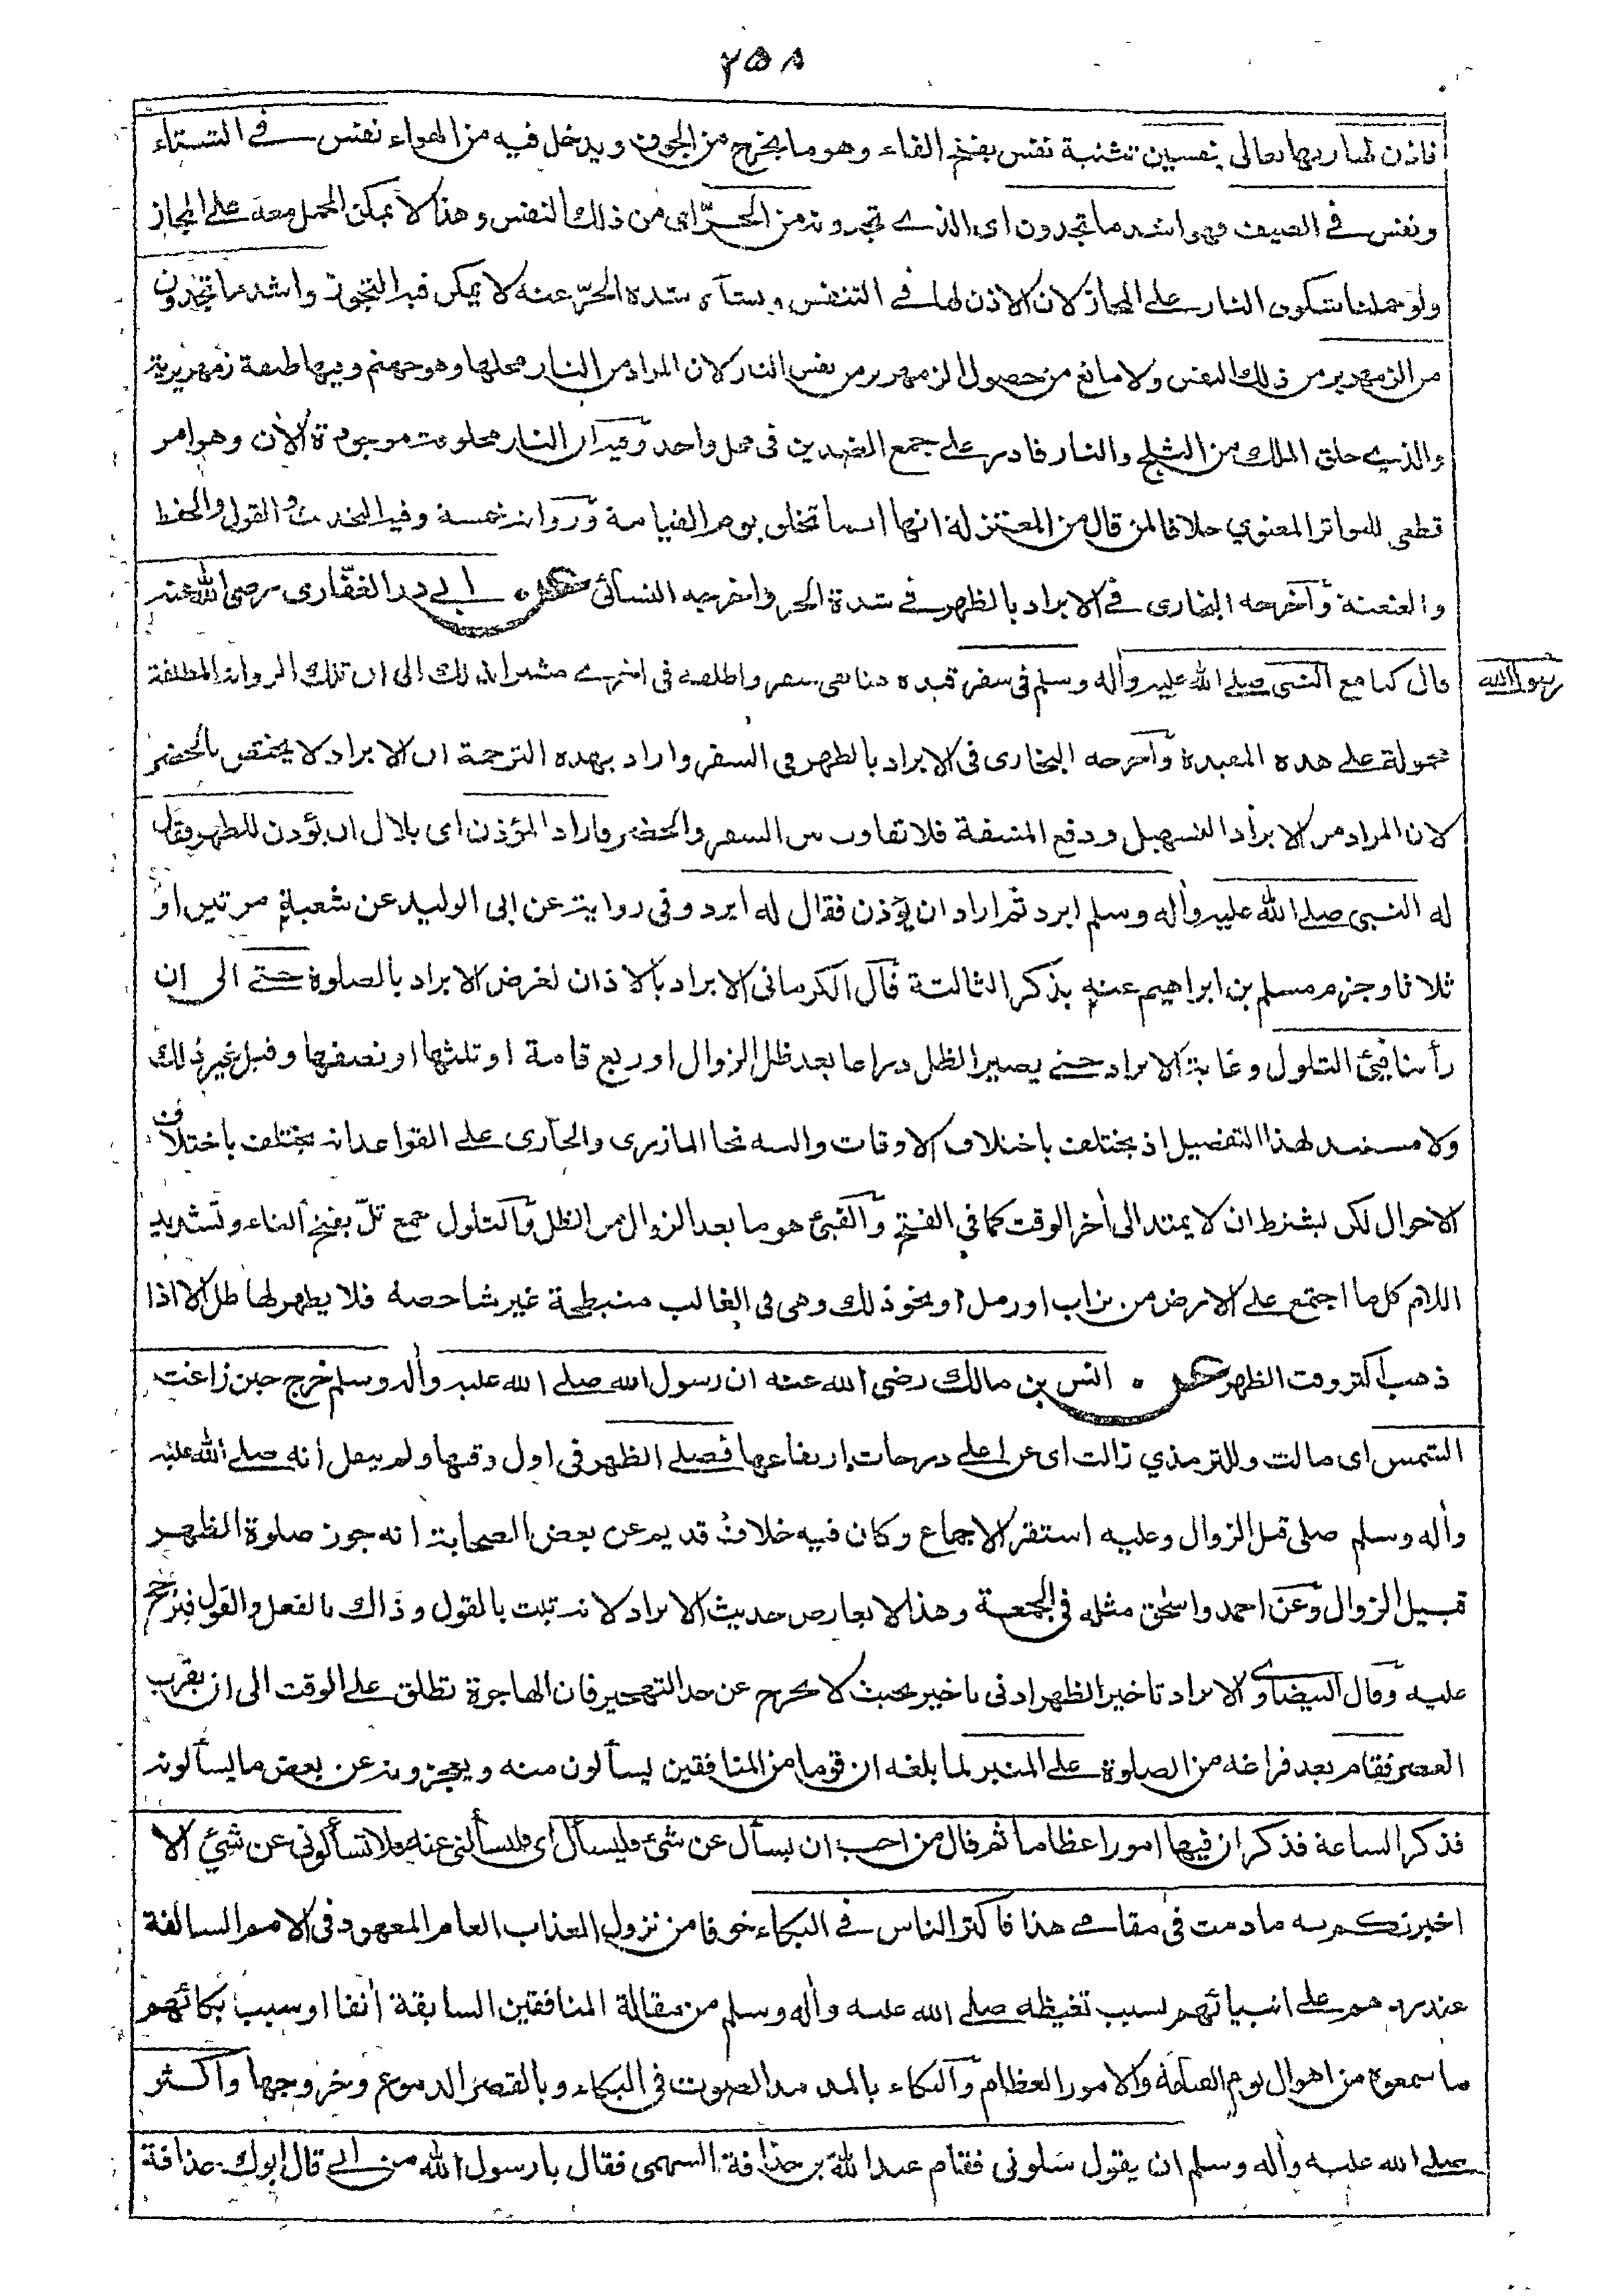 ٢٥٨
فاذن لها ربها تعالى بنفسين تثنية نفس بفتح الفاء وهو ما يخرج من الجوف ويدخل فيه من الهواء نفس في الشتاء
ونفس في الصيف فهو اشد ما تجدون اى الذي تجدونه من الحرّ اى من ذلك النفس وهذا لا يمكن الحمل معه على المجاز
ولو حملنا شكوى النار على المجاز لان الاذن لها في التنفس ونشأة شدة الحرّ عنه لا يمكن فيه التجوز واشد ما تجدون
من الزمهرير من ذلك النفس ولا مانع من حصول الزمهرير من نفس النار لان المراد من النار محلها وهو جهنم وفيها طبقة زمهريرية
والذي خلق الملك من الثلج والنار قادر على جمع الضدين في محل واحد وفيه ان النار مخلوقة موجودة الآن وهو امر
قطعي للتواتر المعنوي خلافا لمن قال من المعتزلة انها انما تخلق يوم القيامة ورواته خمسة وفيه التحديث والقول والحفظ
والعنعنة وآخرجه البخارى في الابراد بالظهر في شدة الحر واخرجه النسائى عن ابي ذر الغفّارى رضي الله عنه
قال كنا مع النبي صلے الله عليه وأله وسلم في سفر قيده هنا في سفر واطلقه في اخرى مشيرا بذلك الى ان تلك الرواية المطلقة
رسول الله
محمولة على هذه المقيدة وآخرجه البخارى في الابراد بالظهر في السفر واراد بهذه الترجمة ان الابراد لا يختص بالحضر
لان المراد من الابراد التسهيل ودفع المشقة فلا تفاوت بين السفر والحضر فاراد المؤذن اى بلال ان يؤذن للظهر فقال
له النبى صلے الله عليه وأله وسلم ابرد ثم اراد ان يؤذن فقال له ابرد وفي رواية عن ابى الوليد عن شعبة مرتين او
ثلاثا وجزم مسلم بن ابراهيم عنه بذكر الثالثة قال الكرماني الابراد بالاذان لغرض الابراد بالصلوة حتے الى ان
رأينا فيئ التلول وغاية الابراد حتے يصير الظل ذراعا بعد ظل الزوال او ربع قامة او ثلثها او نصفها وقيل غير ذلك
ولا مستند لهذا التفصيل اذ يختلف باختلاف الاوقات واليه نحا المازرى والجارى على القواعد انه يختلف باختلاف
الاحوال لكن بشرط ان لا يمتد الى أخر الوقت كما في الفتح والفيئ هو ما بعد الزوال من الظل والتلول جمع تلّ بفتح التاء وتشديد
اللام كل ما اجتمع على الارض من تراب او رمل او نحو ذلك وهي في الغالب منبطحة غير شاخصة فلا يظهر لها ظل الا اذا
ذهب اكثر وقت الظهر عن انس بن مالك رضى الله عنه ان رسول الله صلے الله عليه وأله وسلم خرج حين زاغت
الشمس اى مالت وللترمذي زالت اى عن اعلى درجات ارتفاعها فصلے الظهر في اول وقتها ولم ينقل أنه صلے الله عليه
وأله وسلم صلى قبل الزوال وعليه استقر الاجماع وكان فيه خلاف قديم عن بعض الصحابة انه جوز صلوة الظهر
قبيل الزوال وعن احمد واسحٰق مثله في الجمعة وهذا لا يعارض حديث الابراد لانه ثبت بالقول وذاك بالفعل والقول فيرجح
عليه وقال البيضاوي الابراد تاخير الظهر ادنى تاخير بحيث لا يخرج عن حد التهجير فان الهاجرة تطلق على الوقت الى ان يقرب
العصر فقام بعد فراغه من الصلوة على المنبر لما بلغه ان قوما من المنافقين يسألون منه ويعجزونه عن بعض ما يسألونه
فذكر الساعة فذكر ان فيها امورا عظاما ثم قال من احب ان يسأل عن شئ فليسأل اى فليسألني عنه فلا تسألوني عن شئ الا
اخبرتكم به ما دمت في مقامي هذا فاكثر الناس في البكاء خوفا من نزول العذاب العام المعهود في الامم السالفة
عند ردهم على انبيائهم بسبب تغيظه صلے الله عليه وأله وسلم من مقالة المنافقين السابقة أنفا او سبب بكائهم
ما سمعوه من اهوال يوم القيامة والامور العظام والبكاء بالمد مد الصوت في البكاء وبالقصر الدموع وخروجها واكثر
صلے الله عليه وأله وسلم ان يقول سلوني فقام عبد الله بن حذافة السهمى فقال يا رسول الله من ابي قال ابوك حذافة